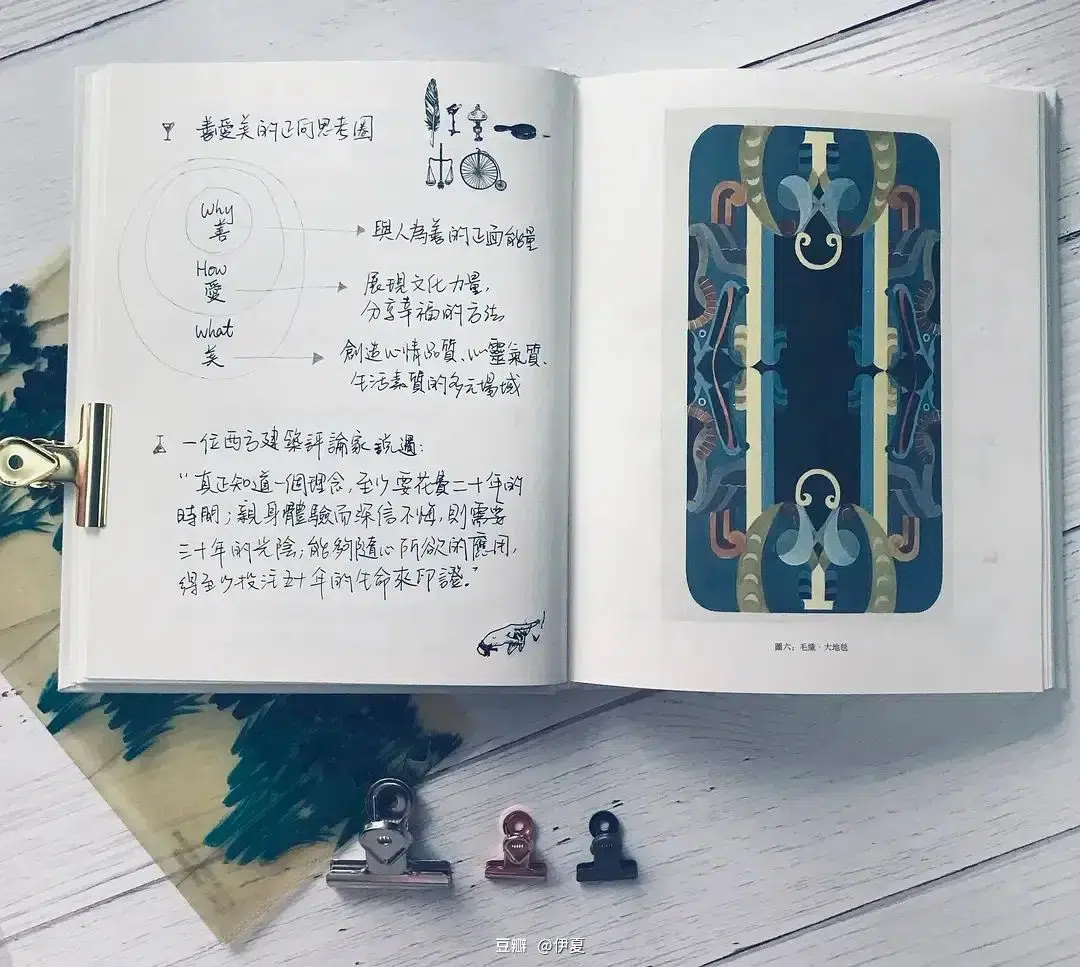 善愛美的正向思考圈
Why
善
與人為善的正面能量
How
愛
展現文化力量,
分享幸福的方法
What
美
創造心情品質、心靈氣質、
生活素質的多元場域
一位西方建築評論家說過:
“真正知道一個理念,至少要花費二十年的
時間;親身體驗而深信不悔,則需要
三十年的光陰;能夠隨心所欲的應用,
得至少投注五十年的生命來印證。”
圖六:毛織·大地毯
豆瓣 @伊夏